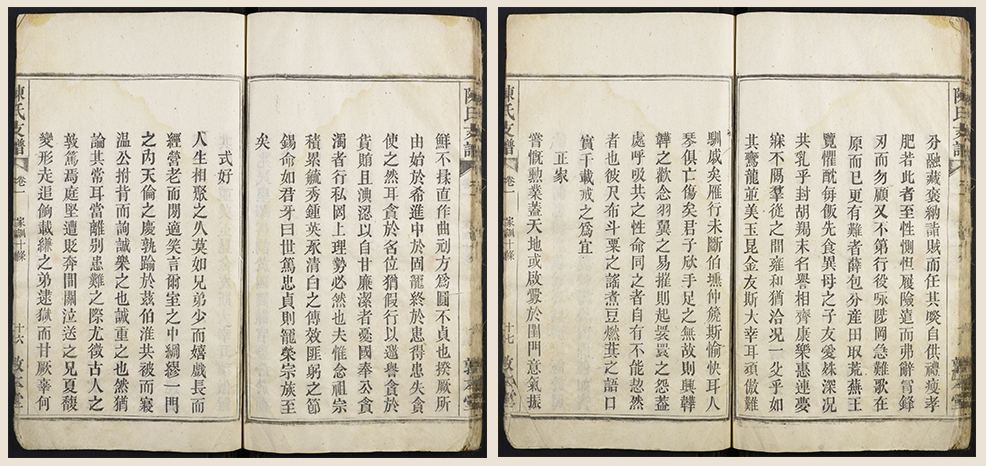 陳氏支譜
鮮不揉直作曲刓方爲圓不貞也揆厥所
由始於希進中於固寵終於患得患失貪
使之然耳貪於名位猶假行以邀譽貪於
貨賄且淟涊以自甘廉潔者憂國奉公貪
濁者行私罔上理勢必然也夫惟念祖宗
積累毓秀鍾英承清白之傳效匪躬之節
錫命如君牙曰世篤忠貞則寵榮宗族至
矣
式好
人生相聚之久莫如兄弟少而嬉戲長而
經營老而閒適笑言爾室之中綢繆一門
之內天倫之慶孰踰於茲伯淮共被而寢
溫公拊背而詢誠樂之也誠重之也然猶
論其常耳當離別患難之際尤徵古人之
敦篤焉庭堅遭貶奔間關泣送之兄夏馥
變形走追餉載縑之弟逮獄而甘厥辜何
陳氏支譜 卷一 家訓十條 十六 敦本堂
陳氏支譜 敦本堂
分融藏褒納詣賊而任其自供禮瘦孝
肥若此者至性惻怛履險道而弗辭冒鋒
刃而勿顧又不第行役咏陟岡急難歌在
原而已更有難者薛包分産田取荒蕪王
覽懼酖每飯先食異母之子友愛殊深况
共乳乎封胡羯末名譽相齊康樂惠連夢
寐不隔羣從之間雍和猶洽况一父乎如
其夔龍並美玉昆金友斯大幸耳頑傲難
馴戚矣雁行未斷伯壎仲篪斯愉快耳人
琴俱亡傷矣君子欣手足之無故則興韡
韡之歡念羽翼之易摧則起嬛嬛之怨蓋
處呼吸共之者性命同之者自有不能恝然
者也彼尺布斗粟之謠煮豆燃萁之語口
實千載戒之爲宜
正家
嘗慨勲業蓋天地或啟釁於閨門意氣振
陳氏支譜 卷一 家訓十條 十七 敦本堂